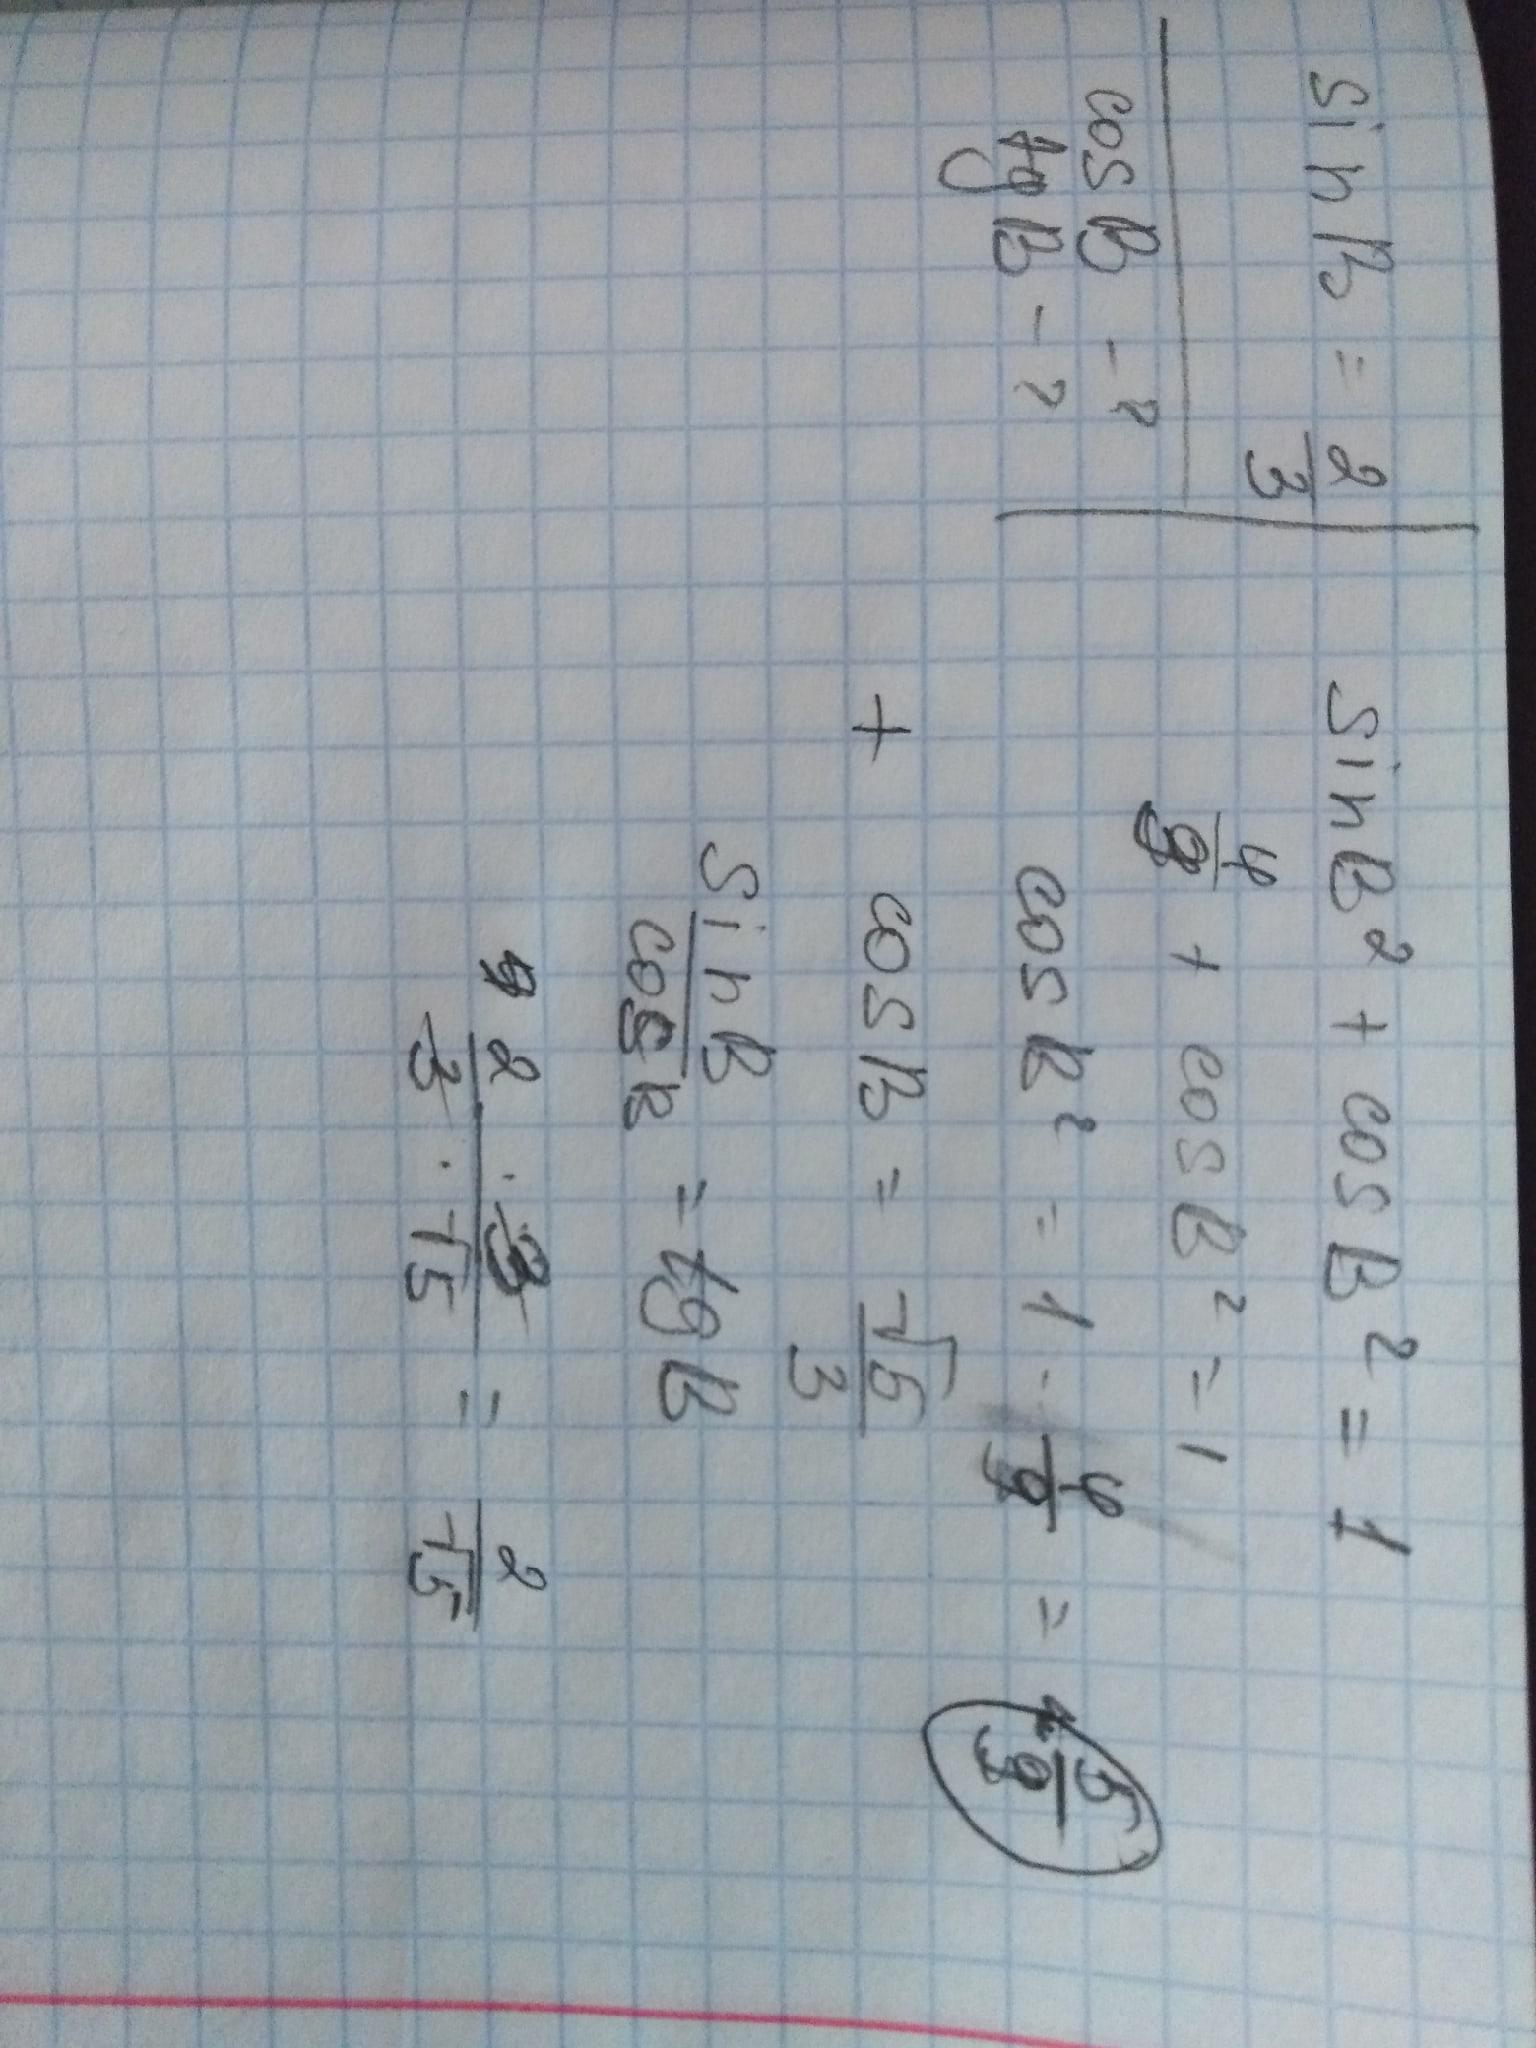 sin B = 2/3
cos B - ?
tg B - ?
sin B² + cos B² = 1
4/9 + cos B² = 1
cos B² = 1 - 4/9 = 5/9
+ cos B = √5/3
sin B/cos B = tg B
2/3 · 3/√5 = 2/√5